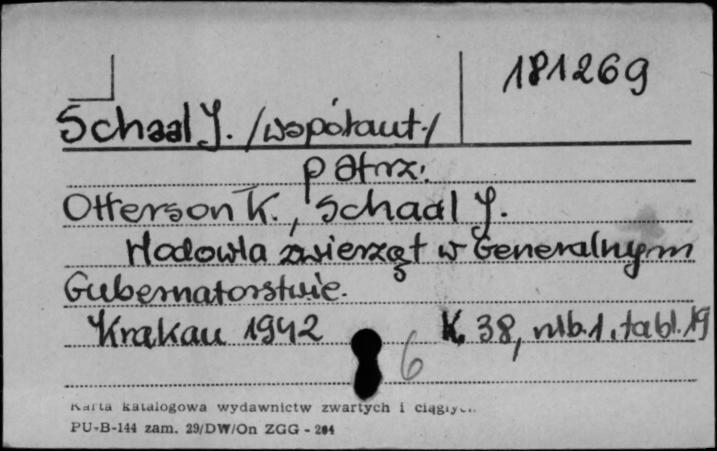 181269
Schaal J. /współaut./
patrz:
Otterson K., Schaal J.
Hodowla zwierząt w Generalnym
Gubernatorstwie.
Krakau 1942 K. 38, nlb.1, tabl.19
6
Karta katalogowa wydawnictw zwartych i ciągłych
PU-B-144 zam. 29/DW/On ZGG - 204